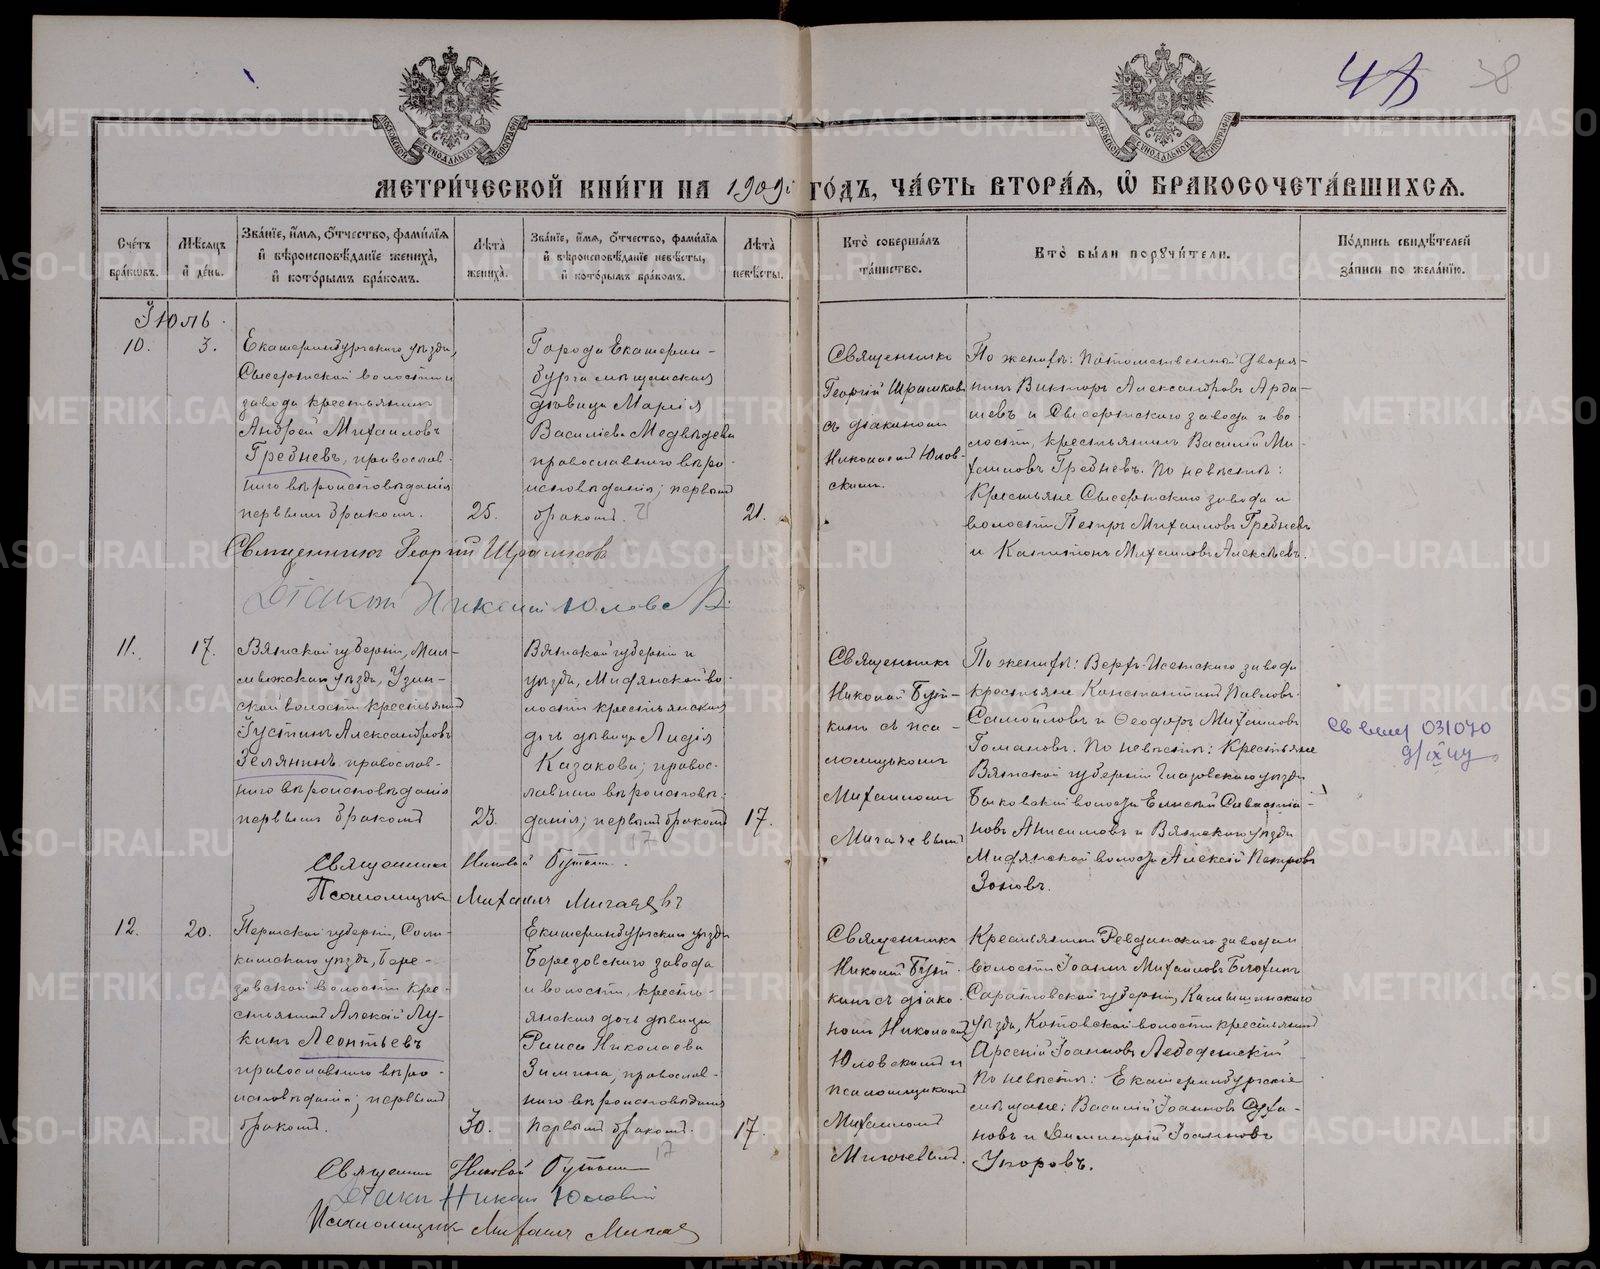 48 38
МЕТРИ́ЧЕСКОЙ КНИ́ГИ НА 1909й ГО́ДЪ, ЧА́СТЬ ВТОРА́Я, Ѡ БРАКОСОЧЕТА́ВШИХСЯ.
Сче́тъ бра́ковъ.
Мѣ́сяцъ и҆ де́нь.
Зва́нїе, и҆́мя, ѻ҆́тчество, фами́лїя и҆ вѣроисповѣ́данїе жениха̀, и҆ кото́рымъ бра́комъ.
Лѣ́та жениха̀.
Зва́нїе, и҆́мя, ѻ҆́тчество, фами́лїя и҆ вѣроисповѣ́данїе невѣ́сты, и҆ кото́рымъ бра́комъ.
Лѣ́та невѣ́сты.
Кто̀ соверша́лъ та́инство.
Кто̀ бы́ли порꙋчи́тели.
По́дпись свидѣ́телей за́писи по жела́нїю.
Іюль.
10.
3.
Екатеринбургскаго уѣзда,
Сысертской волости и
завода крестьянинъ
Андрей Михаиловъ
Гребневъ, православ-
наго вѣроисповѣданія
первымъ бракомъ.
25.
Города Екатерин-
бурга мѣщанская
дѣвица Марія
Василіева Медвѣдева
православнаго вѣро-
исповѣданія; первымъ
бракомъ. 21
21.
Священникъ
Георгій Шрамковъ
съ діакономъ
Николаемъ Юлов-
скимъ.
По женихѣ: Потомственный дворя-
нинъ Викторъ Александровъ Арда-
шевъ и Сысертскаго завода и во-
лости, крестьянинъ Василій Ми-
хаиловъ Гребневъ. По невѣстѣ:
Крестьяне Сысертскаго завода и
волости Петръ Михаиловъ Гребневъ
и Капитонъ Михаиловъ Алексѣевъ.
Священникъ Георгій Шрамковъ
Діаконъ Николай Юловскій
11.
17.
Вятской губерніи, Мал-
мыжскаго уѣзда, Узин-
ской волости крестьянинъ
Іустинъ Александровъ
Зелянинъ православ-
наго вѣроисповѣданія
первымъ бракомъ
23.
Вятской губерніи и
уѣзда, Мидянской во-
лости крестьянская
дочь дѣвица Лидія
Казакова; правос-
лавнаго вѣроисповѣ-
данія; первымъ бракомъ
17
17.
Священникъ
Николай Бут-
кинъ съ пса-
ломщикомъ
Михаиломъ
Мичаевымъ
По женихѣ: Верхъ-Исетскаго завода
крестьяне Константинъ Павловъ
Самойловъ и Ѳеодоръ Михаиловъ
Гомановъ. По невѣстѣ: Крестьяне
Вятской губерніи Глазовскаго уѣзда
Быковской волости Елисей Савватіа-
новъ Анисимовъ и Вятскаго уѣзда
Мидянской волости Алексій Петровъ
Зоновъ.
031070
Священникъ Николай Буткинъ.
Псаломщикъ Михаилъ Мичаевъ
12.
20.
Пермской губерніи, Соли-
камскаго уѣзда, Бере-
зовской волости кре-
стьянинъ Алексій Лу-
кинъ Леонтьевъ
православнаго вѣро-
исповѣданія; первымъ
бракомъ.
30.
Екатеринбургскаго уѣзда
Березовскаго завода
и волости, кресть-
янская дочь дѣвица
Раиса Николаева
Зимина, православ-
наго вѣроисповѣданія
первымъ бракомъ.
17
17.
Священникъ
Николай Бут-
кинъ съ діако-
номъ Николаемъ
Юловскимъ и
псаломщикомъ
Михаиломъ
Мичаевымъ.
Крестьянинъ Ревдинскаго завода и
волости Іоаннъ Михаиловъ Блохинъ
Саратовской губерніи, Камышинскаго
уѣзда, Котовской волости крестьянинъ
Арсеній Іоанновъ
По невѣстѣ: Екатеринбургскіе
мѣщане: Василій Іоанновъ Суха-
новъ и Димитрій Іоанновъ
Упоровъ.
Священникъ Николай Буткинъ
Діаконъ Николай Юловскій
Псаломщикъ Михаилъ Мичаевъ
METRIKI.GASO-URAL.RU